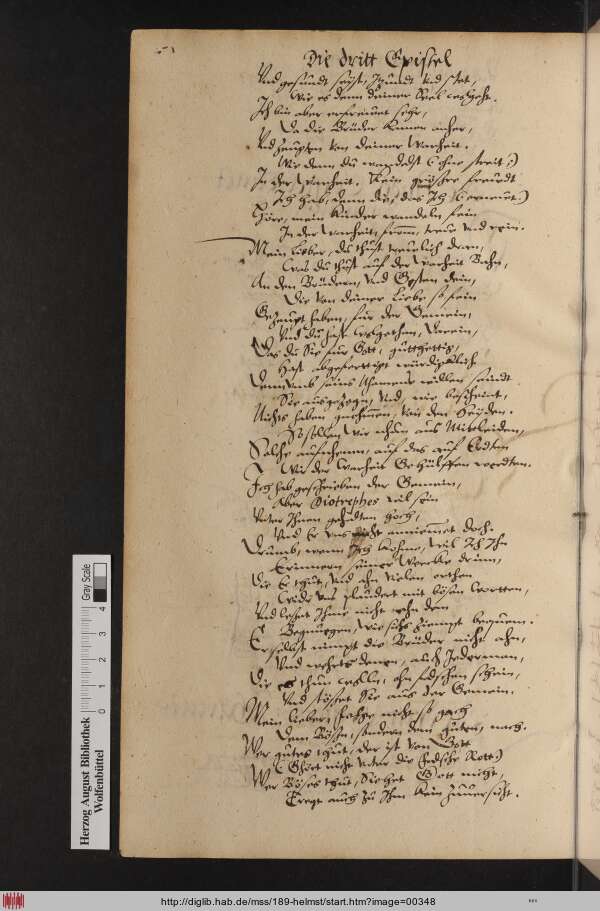 Die dritt Epistel
Vnd gesundt seist, Itzundt vnd stet,
Wie es denn deiner Seel wolgeht.
Ich bin aber erfreuet sehr,
Da die Brüder kumen anher,
Vnd zeugten von deiner Warheit.
Wie denn du wandelst (ohne streit,)
In der Warheit. Kein grössre freudt
Ich hab, denn die, das Ich
Höre, mein Kinder wandeln fein
In der Warheit, fromm, treue vnd rein.
Mein lieber, du thust treulich dran,
Was du thust auf der Warheit Bahn,
An den Brüdern, vnd Gesten dein,
Die von deiner Liebe so fein
Gezeugt haben, für der Gemein,
Vnd du hast wolgethan, darein,
Das du Sie für Gott, gutthettig,
Hast abgefertigt würdiglich
Denn vmb seins Nhamens willen seindt
Sie ausgezogn, vnd, wie bescheint,
Nichts haben genhommen, von den Heyden.
So sollen wir nhun aus Mitleiden,
Solche aufnhemen, auf das auf Erdten
Wir der Warheit Gehülffen werdten.
Ich hab geschrieben der Gemein,
Aber Diotrephes wil sein
Vnter Ihnen gehalten hoch,
Vnd Er vns nicht annimmet doch.
Drumb, wenn Ich kohme, wil Ich Ihn
Erinnern seiner Wercke drinn,
Die Er thut, vnd ahn vielen orthen
Wider vns plaudert mit bösen wortten,
Vnd lesset Ihme nicht ahn dem
Begnüegen, wie sichs ziempt bequem.
Er selbst nimpt die Brüder nicht ahn,
Vnd wehrets denen, auch Jederman,
Die es thun wolln, ohn falschen schein,
Vnd stösset Sie aus der Gemein.
Mein lieber, folge nicht so gach
Dem Bösen, sondern dem guten, nach.
Wer gutes thut, der ist von Gott
(Ghört nicht vnter die falsche Rott.)
Wer Böses thut, Siehet Gott nicht,
Tregt auch zu Ihm kein zuuersicht.
Herzog August Bibliothek
Wolfenbüttel
0 1 2 3 4
Gray Scale
http://diglib.hab.de/mss/189-helmst/start.htm?image=00348